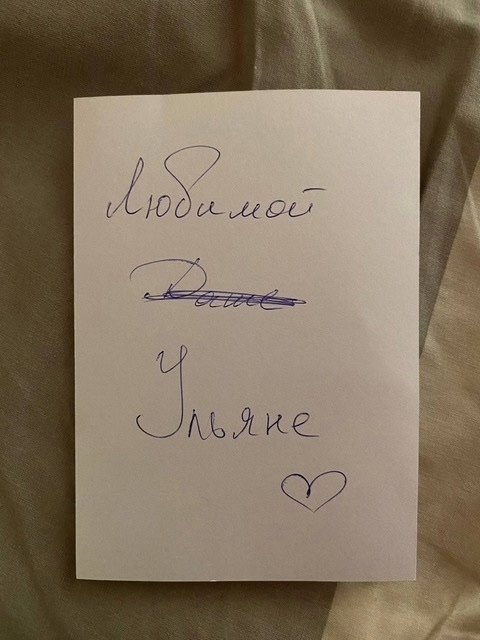 Любимой
Даше
Ульяне